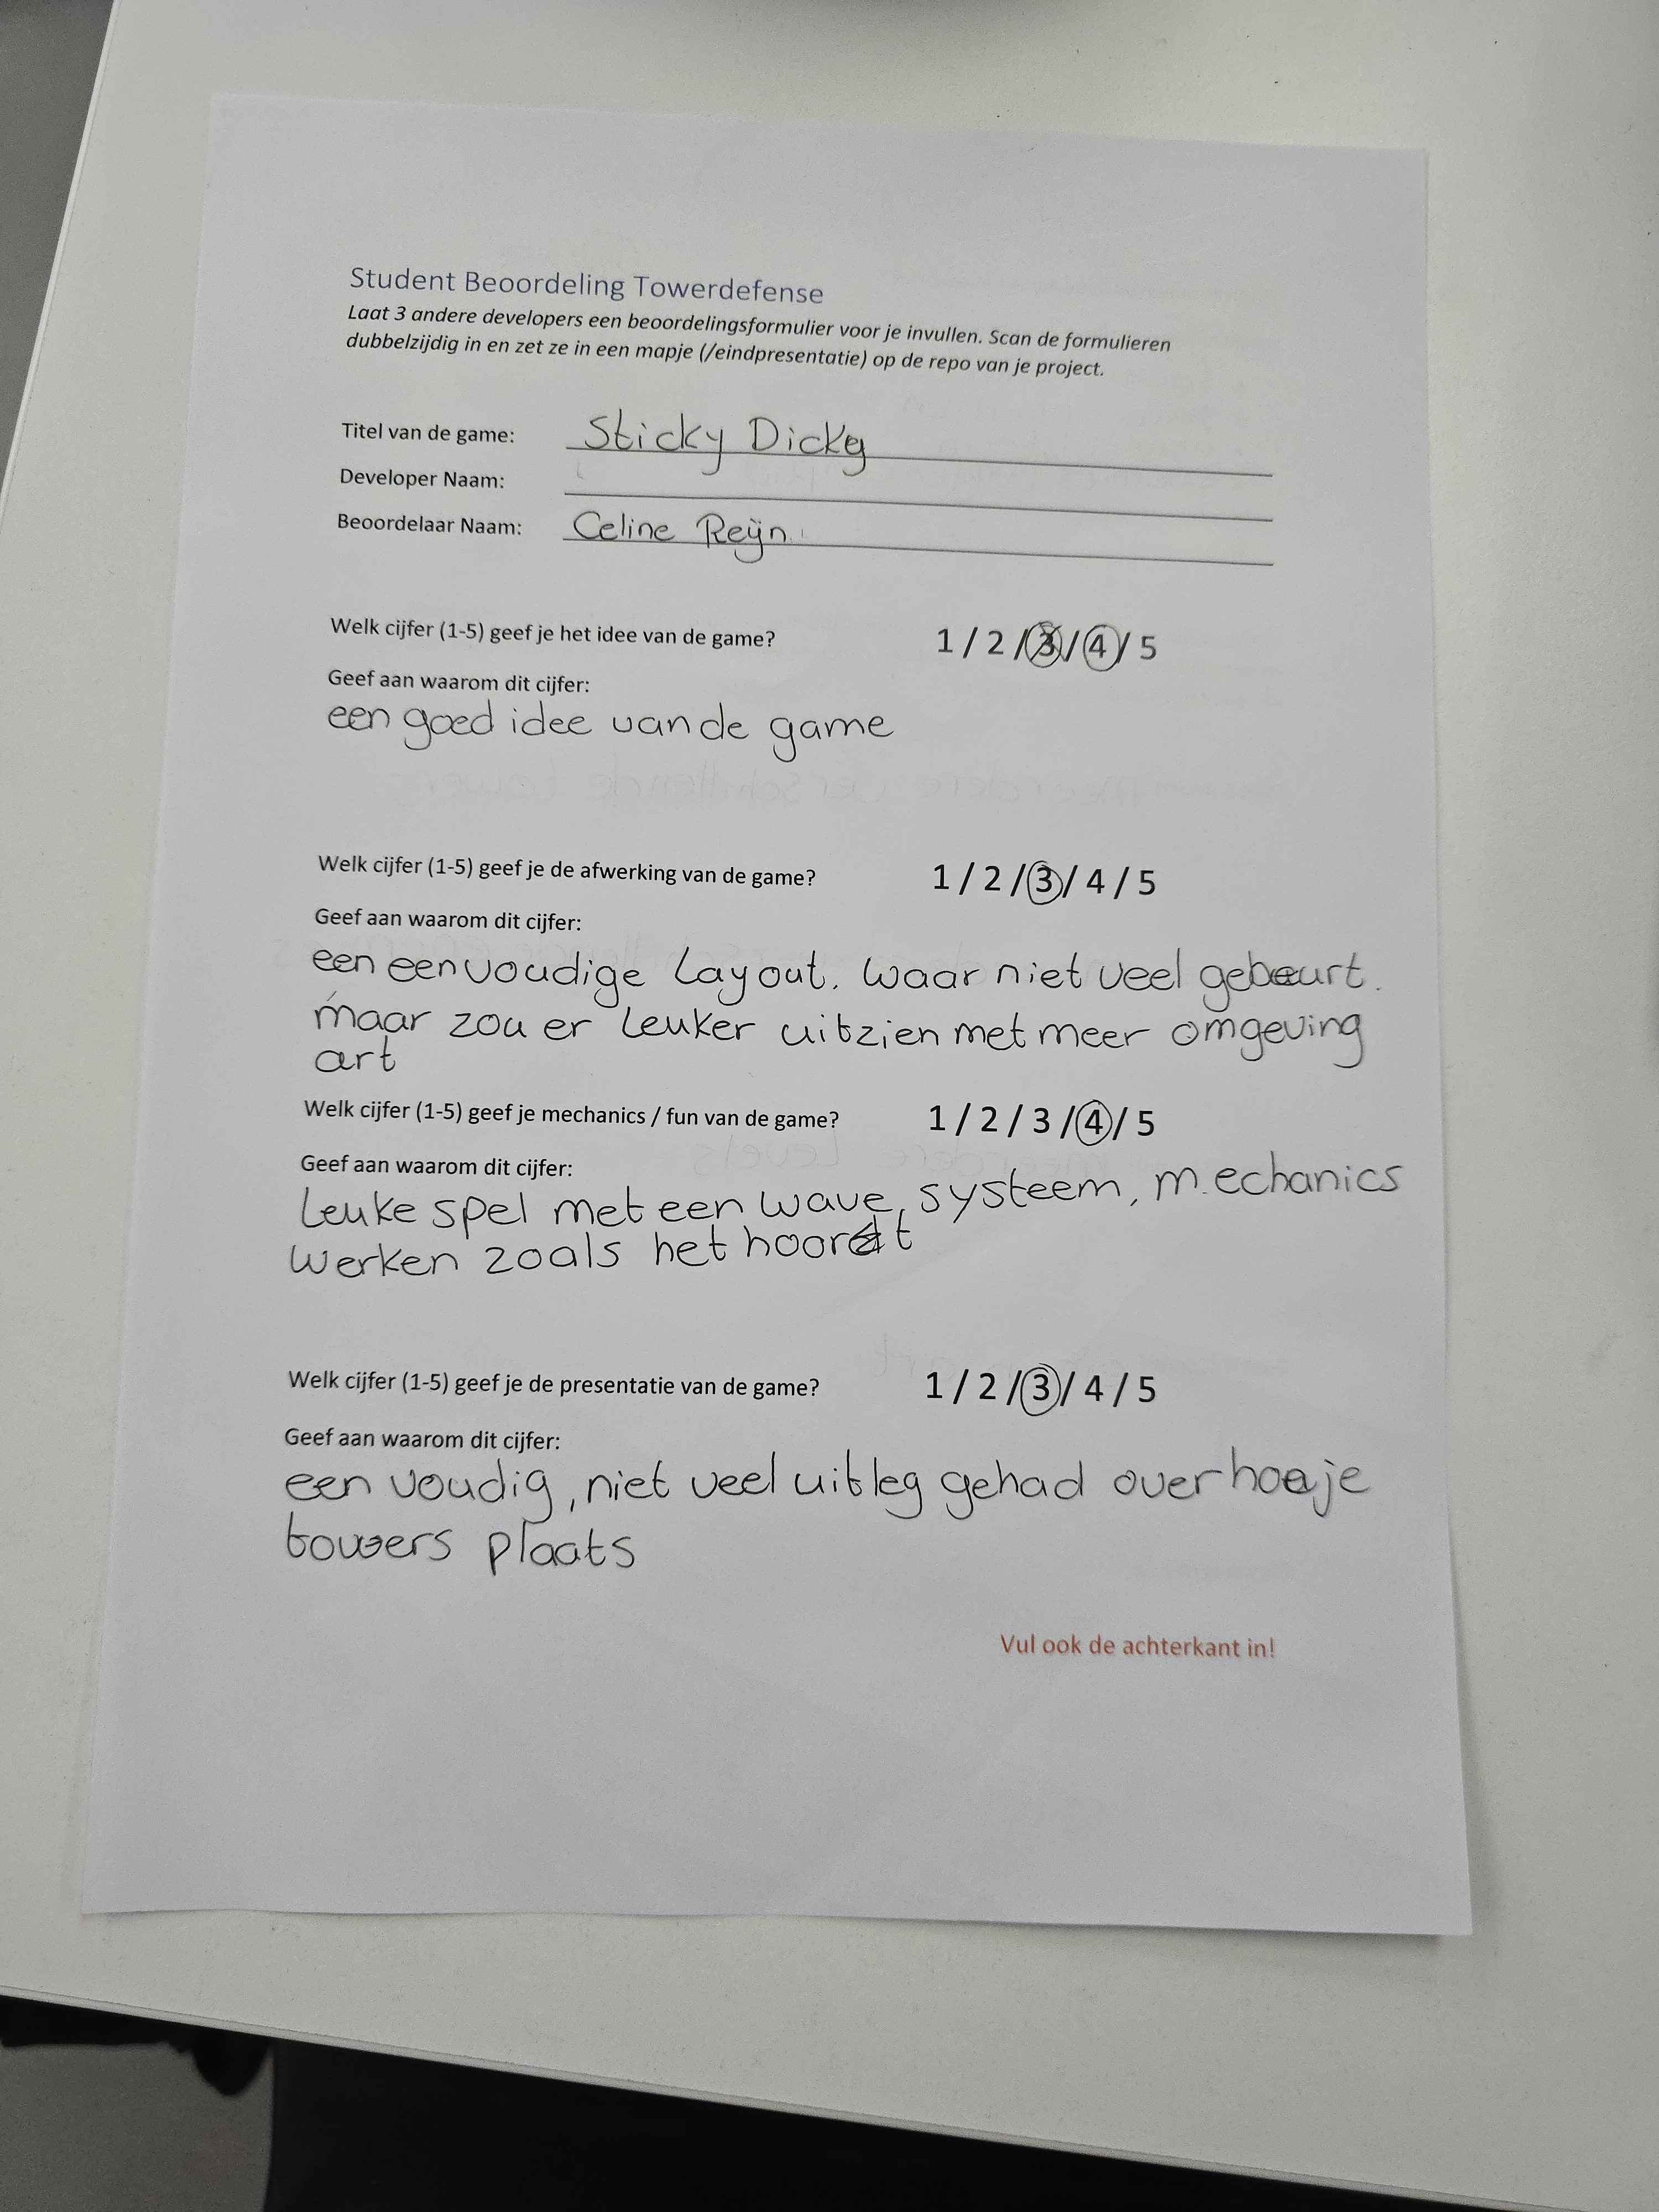 Student Beoordeling Towerdefense
Laat 3 andere developers een beoordelingsformulier voor je invullen. Scan de formulieren
dubbelzijdig in en zet ze in een mapje (/eindpresentatie) op de repo van je project.
Titel van de game: Sticky Dicky
Developer Naam:
Beoordelaar Naam: Celine Reijn
Welk cijfer (1-5) geef je het idee van de game? 1 / 2 / 3 / 4 / 5
Geef aan waarom dit cijfer:
een goed idee van de game
Welk cijfer (1-5) geef je de afwerking van de game? 1 / 2 / 3 / 4 / 5
Geef aan waarom dit cijfer:
een eenvoudige layout. waar niet veel gebeurt.
maar zou er leuker uitzien met meer omgeving
art
Welk cijfer (1-5) geef je mechanics / fun van de game? 1 / 2 / 3 / 4 / 5
Geef aan waarom dit cijfer:
Leuke spel met een wave systeem, mechanics
werken zoals het hoort
Welk cijfer (1-5) geef je de presentatie van de game? 1 / 2 / 3 / 4 / 5
Geef aan waarom dit cijfer:
een voudig, niet veel uitleg gehad over hoe je
towers plaats
Vul ook de achterkant in!